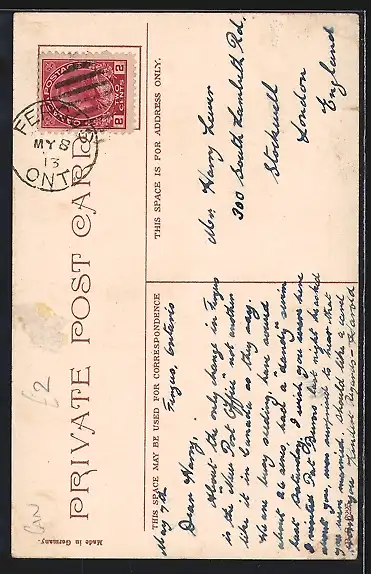 PRIVATE POST CARD
THIS SPACE MAY BE USED FOR CORRESPONDENCE
THIS SPACE IS FOR ADDRESS ONLY.
CANADA POSTAGE
2 CENTS 2
FE
MY 8
13
ONT
May 7th Fergus, Ontario
Dear Harry,
About the only change in Fergus
is the "New Post Office" not another
like it in Canada as they say.
We are busy seeding, have sowed
about 26 acres, had a "dandy" swim
last Saturday, I wish you were here
I visited Pat Burns last night he asked
about you, was surprised to hear that
you were married. Should like a card
from you Kindest Regards - Harold
Mr Harry Lever
300 South Lambeth Rd,
Stockwell
London
England
£2
CAN
Made in Germany.